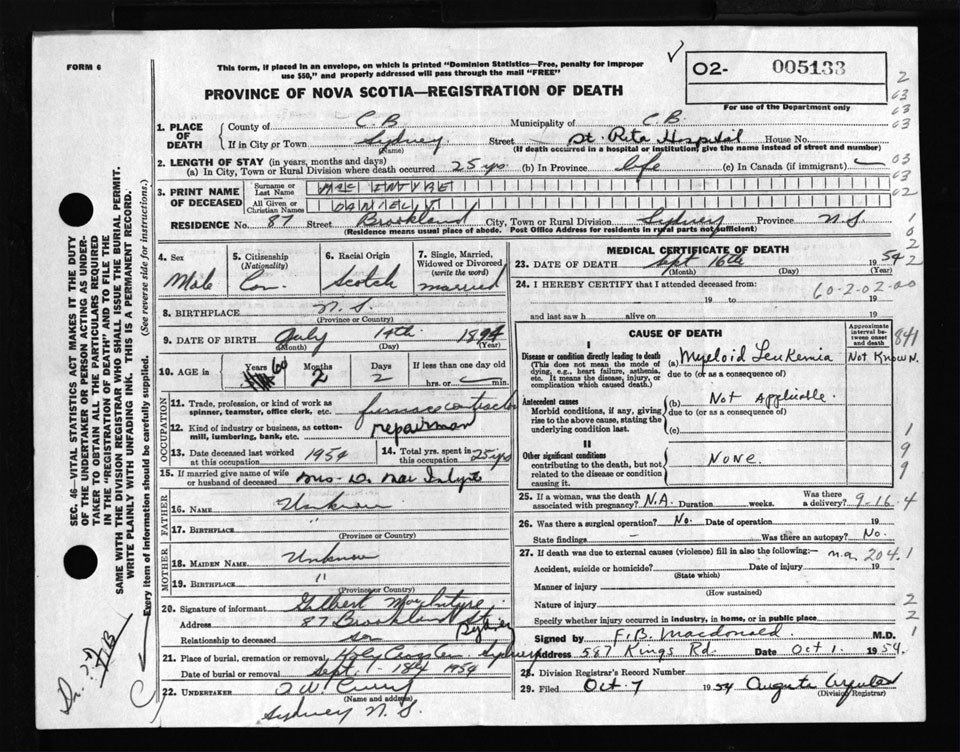 FORM 6
This form, if placed in an envelope, on which is printed "Dominion Statistics—Free, penalty for improper
use $50," and properly addressed will pass through the mail "FREE"
PROVINCE OF NOVA SCOTIA—REGISTRATION OF DEATH
02- 005133
For use of the Department only
1. PLACE OF DEATH County of C.B. Municipality of C.B.
If in City or Town Sydney (Name) Street St. Rita Hospital House No.
(If death occurred in a hospital or institution, give the name instead of street and number)
2. LENGTH OF STAY (in years, months and days)
(a) In City, Town or Rural Division where death occurred 25 yrs. (b) In Province life (c) In Canada (if immigrant) —
3. PRINT NAME OF DECEASED Surname or Last Name MAC INTYRE
All Given or Christian Names DANIEL
RESIDENCE No. 87 Street Brookland City, Town or Rural Division Sydney Province N.S
(Residence means usual place of abode. Post Office Address for residents in rural parts not sufficient)
4. Sex Male
5. Citizenship (Nationality) Can.
6. Racial Origin Scotch
7. Single, Married, Widowed or Divorced (write the word) married
8. BIRTHPLACE N.S (Province or Country)
9. DATE OF BIRTH July 14th 1894
(Month) (Day) (Year)
10. AGE in Years 60 Months 2 Days 2 If less than one day old
hrs. or min.
OCCUPATION
11. Trade, profession, or kind of work as spinner, teamster, office clerk, etc. furnace
12. Kind of industry or business, as cotton-mill, lumbering, bank, etc. repairman
13. Date deceased last worked at this occupation 1954 14. Total yrs. spent in this occupation 25 yrs
15. If married give name of wife or husband of deceased Mrs. D. Mac Intyre
FATHER
16. Name Unknown
17. Birthplace "
(Province or Country)
MOTHER
18. Maiden Name Unknown
19. Birthplace "
(Province or Country)
20. Signature of informant Gilbert MacIntyre
Address 87 Brookland St Sydney
Relationship to deceased son
21. Place of burial, cremation or removal Holy Cross Sydney
Date of burial or removal Sept. 18th 1954
22. UNDERTAKER
(Name and address)
Sydney N.S.
MEDICAL CERTIFICATE OF DEATH
23. DATE OF DEATH Sept 16th 1954
(Month) (Day) (Year)
24. I HEREBY CERTIFY that I attended deceased from: 60-2-02-00
19 to 19
and last saw h alive on 19
CAUSE OF DEATH
Approximate interval between onset and death
I
Disease or condition directly leading to death (a) Myeloid Leukemia Not Known.
(This does not mean the mode of dying, e.g., heart failure, asthenia, etc. It means the disease, injury, or complication which caused death.)
due to (or as a consequence of)
Antecedent causes (b) Not Applicable.
Morbid conditions, if any, giving rise to the above cause, stating the underlying condition last.
due to (or as a consequence of)
(c)
II
Other significant conditions None.
contributing to the death, but not related to the disease or condition causing it.
25. If a woman, was the death associated with pregnancy? N.A. Duration weeks. Was there a delivery? 9-16-4
26. Was there a surgical operation? No. Date of operation 19
State findings — Was there an autopsy? No.
27. If death was due to external causes (violence) fill in also the following:— n.a. 204.1
Accident, suicide or homicide? Date of injury 19
(State which)
Manner of injury
(How sustained)
Nature of injury
Specify whether injury occurred in industry, in home, or in public place
Signed by F.B. Macdonald. M.D.
Address 587 Kings Rd. Date Oct 1. 1954.
28. Division Registrar's Record Number
29. Filed Oct. 7 1954 Augusta
(Division Registrar)
SEC. 46—VITAL STATISTICS ACT MAKES IT THE DUTY
OF THE UNDERTAKER OR PERSON ACTING AS UNDERTAKER TO OBTAIN ALL THE PARTICULARS REQUIRED
IN THE "REGISTRATION OF DEATH" AND TO FILE THE
SAME WITH THE DIVISION REGISTRAR WHO SHALL ISSUE THE BURIAL PERMIT.
WRITE PLAINLY WITH UNFADING INK. THIS IS A PERMANENT RECORD.
Every item of information should be carefully supplied. (See reverse side for instructions.)
2
63
03
63
03
63
02
1
0
2
2
841
1
9
9
1
2
2
1